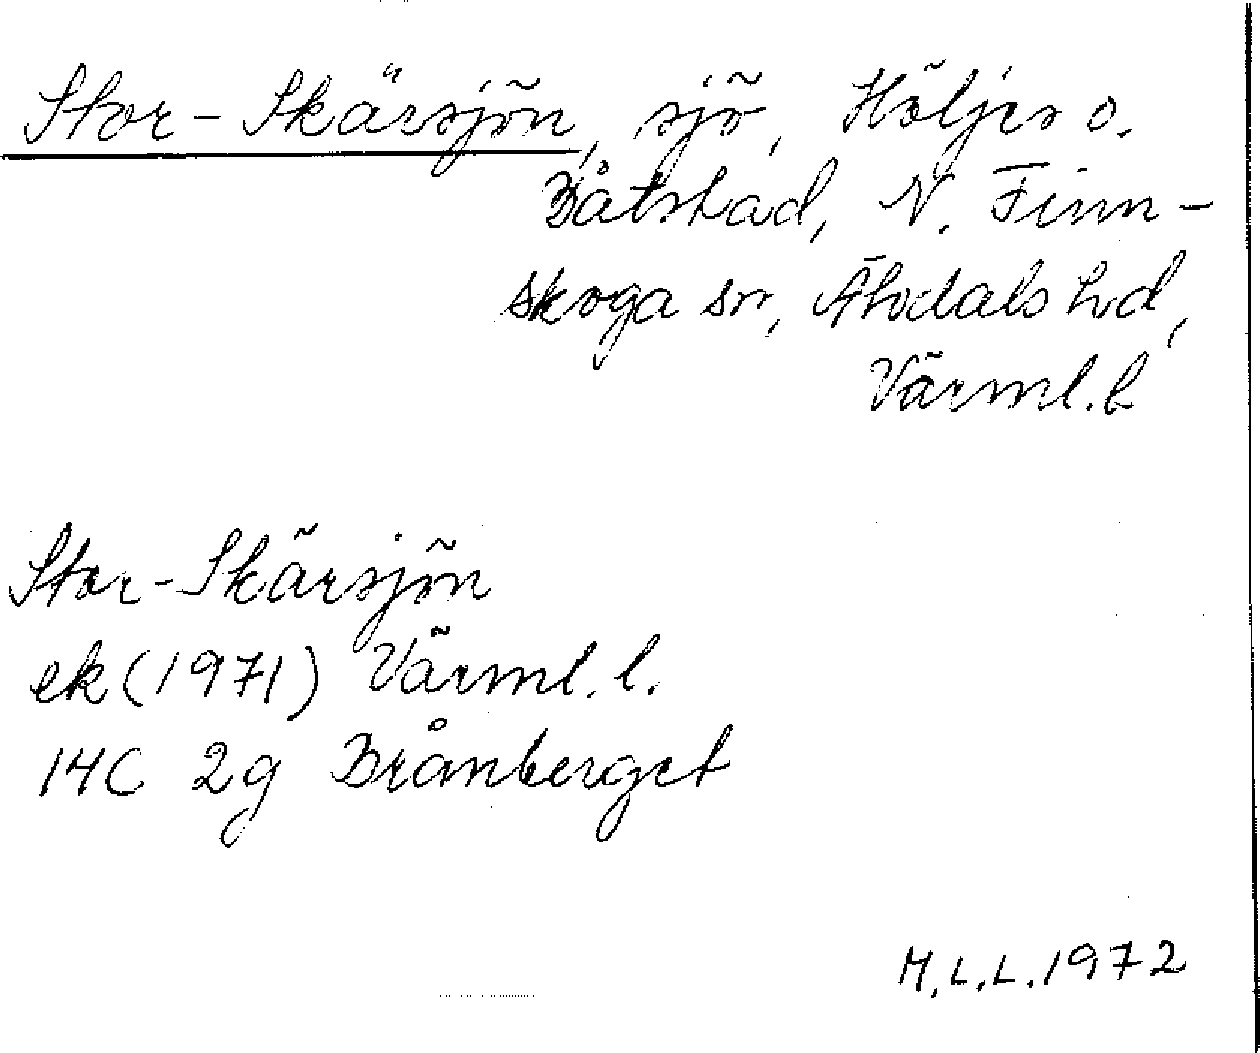 Stor-Skärsjön, sjö, Höljes o.
Båtstad, N. Finn-
skoga sn, Älvdals hd,
Värml. l
Stor-Skärsjön
ek (1971) Värml. l.
14C 2g Brånberget
M.L.L. 1972